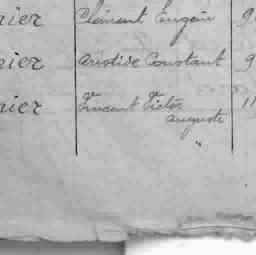 nier Clément Eugène 9
nier Aristide Constant 9
nier Vincent Victor 11
Auguste
"